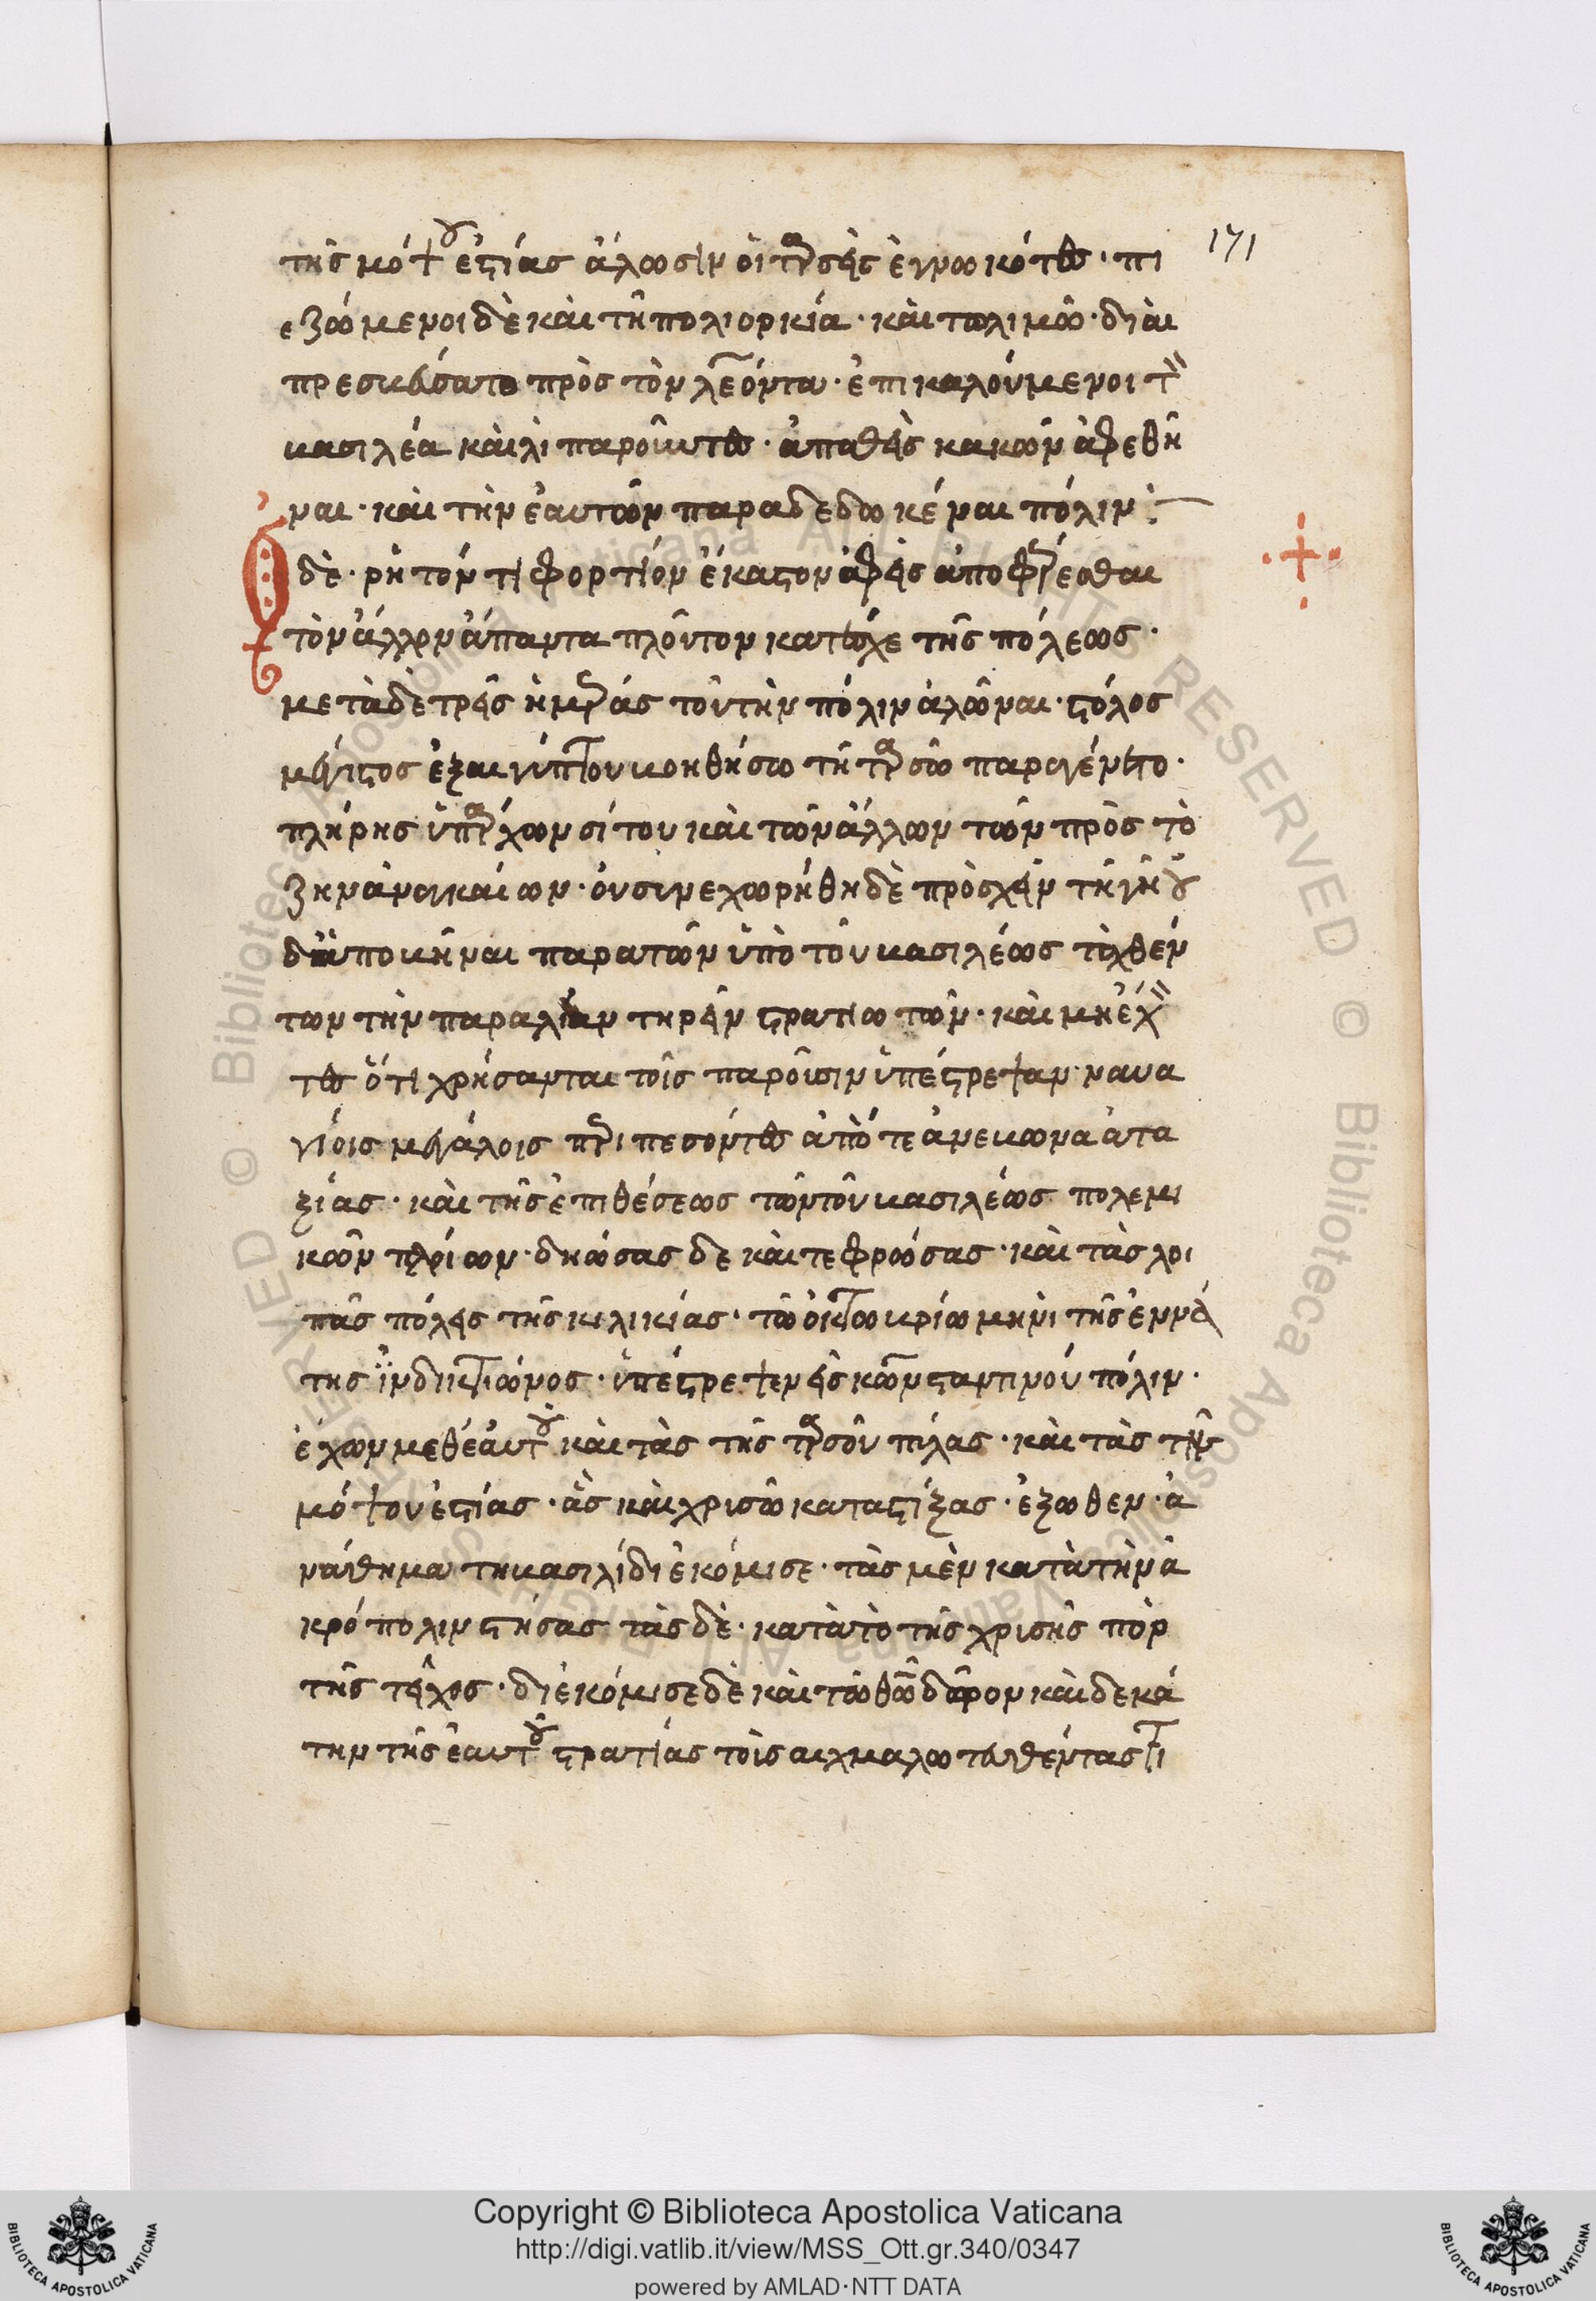 171
τῆς μόψου ἑστίας ἅλωσιν οἱ ταρσεῖς ἐγνωκότες· πι
εζώμενοι δὲ καὶ τῆ πολιορκία· καὶ τωλιμῶ· δϊαι
πρεσβεύσατο πρὸς τὸν λέοντα· ἐπικαλούμενοι τὸν
βασιλέα καὶ λιπαροῦντες· ἀπαθεῖς κακῶν ἀφεθῆ
ναι· καὶ τὴν ἑαυτῶν παραδεδωκέναι πόλιν:
Ὁ δὲ· ρητόν τι φορτίον ἕκαστον ἀφεὶς ἀποφέρεσθαι
τὸν ἄλλον ἅπαντα πλοῦτον κατέσχε τῆς πόλεως·
μετὰ δὲ τρεῖς ἡμέρας τοῦ τὴν πόλιν ἁλῶναι· στόλος
μέγιστος ἐξ αιγύπτου βοηθήσω τῆ ταρσῶ παρεγένετο·
πλήρης ὑπάρχων σίτου καὶ τῶν ἄλλων τῶν πρὸς τὸ
ζην ἀναγκαίων· οὐ σινεχωρήθη δὲ πρὸσχεῖν τῆ γῆ οὐ
δ' ἀποβῆναι παρα τῶν ὑπὸ τοῦ βασιλέως ταχθέν
των τὴν παραλίαν τηρεῖν στρατιωτῶν· καὶ μὴ ἔχον
τες ὅτι χρήσανται τοῖς παροῦσιν ὑπέστρεψαν· ναυα
γίοις μεγάλοις περιπεσόντες ἀπό τε ἀνεκωναἀτα
ξίας· καὶ τῆς ἐπιθέσεως τῶν τοῦ βασιλέως πολεμι
κῶν πλοίων· δηώσας δε καὶ τεφρώσας· καὶ τὰς λοι
πὰς πόλεις τῆς κιλικίας· τῶ ὀκτωβρίω μηνὶ τῆς ἐννά
της ϊνδικτιῶνος· ὑπέστρεψεν εἰς κωνσταντινούπόλιν·
ἔχων μεθέαυτοῦ καὶ τὰς τῆς ταρσοῦ πύλας· καὶ τὰς τῆς
μόψου ἑστίας· ἃς καὶ χρισῶ καταστίξας· ἔξωθεν· ἀ
νάθημα τηβασιλίδι ἐκόμισε· τὰς μὲν κατὰ τὴν ἀ
κρόπολιν στήσας τὰς δὲ· κατὰ τὸ τῆς χρισῆς πὸρ
τῆς τεῖχος· διεκόμισε δὲ καὶ τῶ θεῶ δῶρον καὶ δεκά
την τῆς ἑαυτοῦ στρατίας τοῖς αιχμαλωτευθέντας τι
Copyright © Biblioteca Apostolica Vaticana
http://digi.vatlib.it/view/MSS_Ott.gr.340/0347
powered by AMLAD·NTT DATA